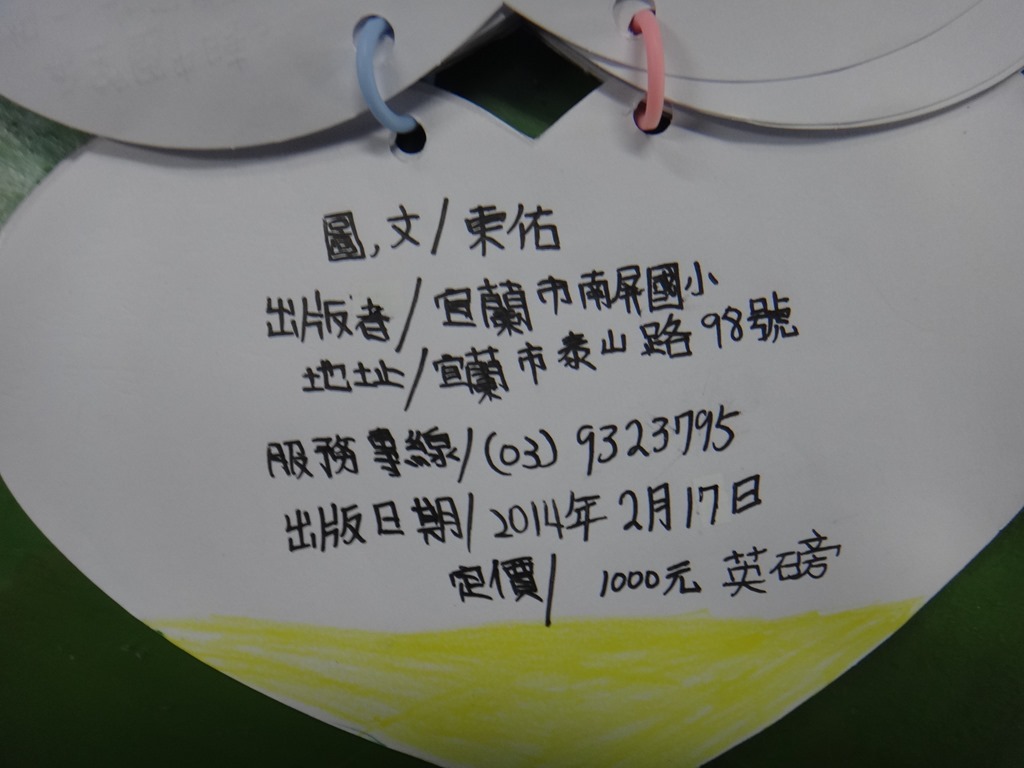 圖,文/東佑
出版者/宜蘭市南屏國小
地址/宜蘭市泰山路98號
服務專線/(03)9323795
出版日期/2014年2月17日
定價/1000元 英磅